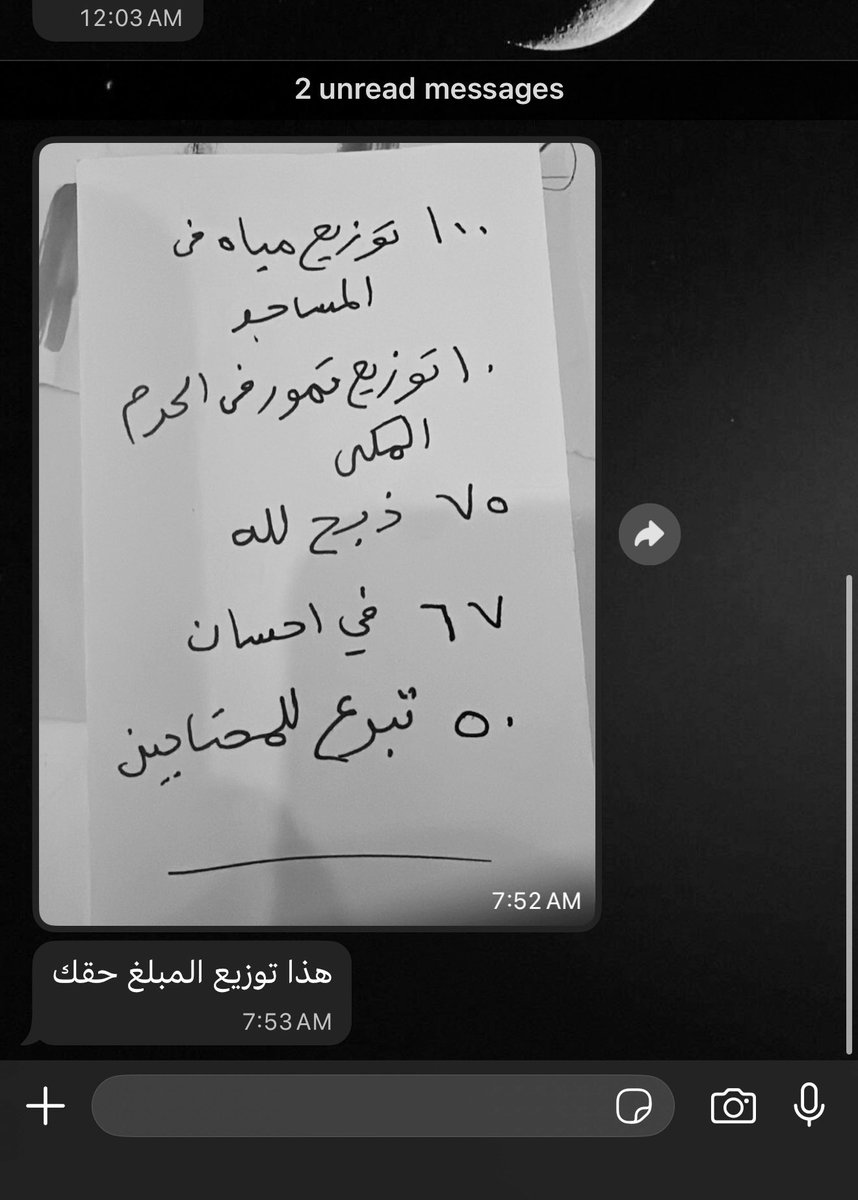 12:03 AM
2 unread messages
١٠٠ توزيع مياه فى
المساجد
١٠ توزيع تمور فى الحرم
المكى
٧٥ ذبح لله
٦٧ في احسان
٥٠ تبرع للمحتاجين
7:52 AM
هذا توزيع المبلغ حقك
7:53 AM